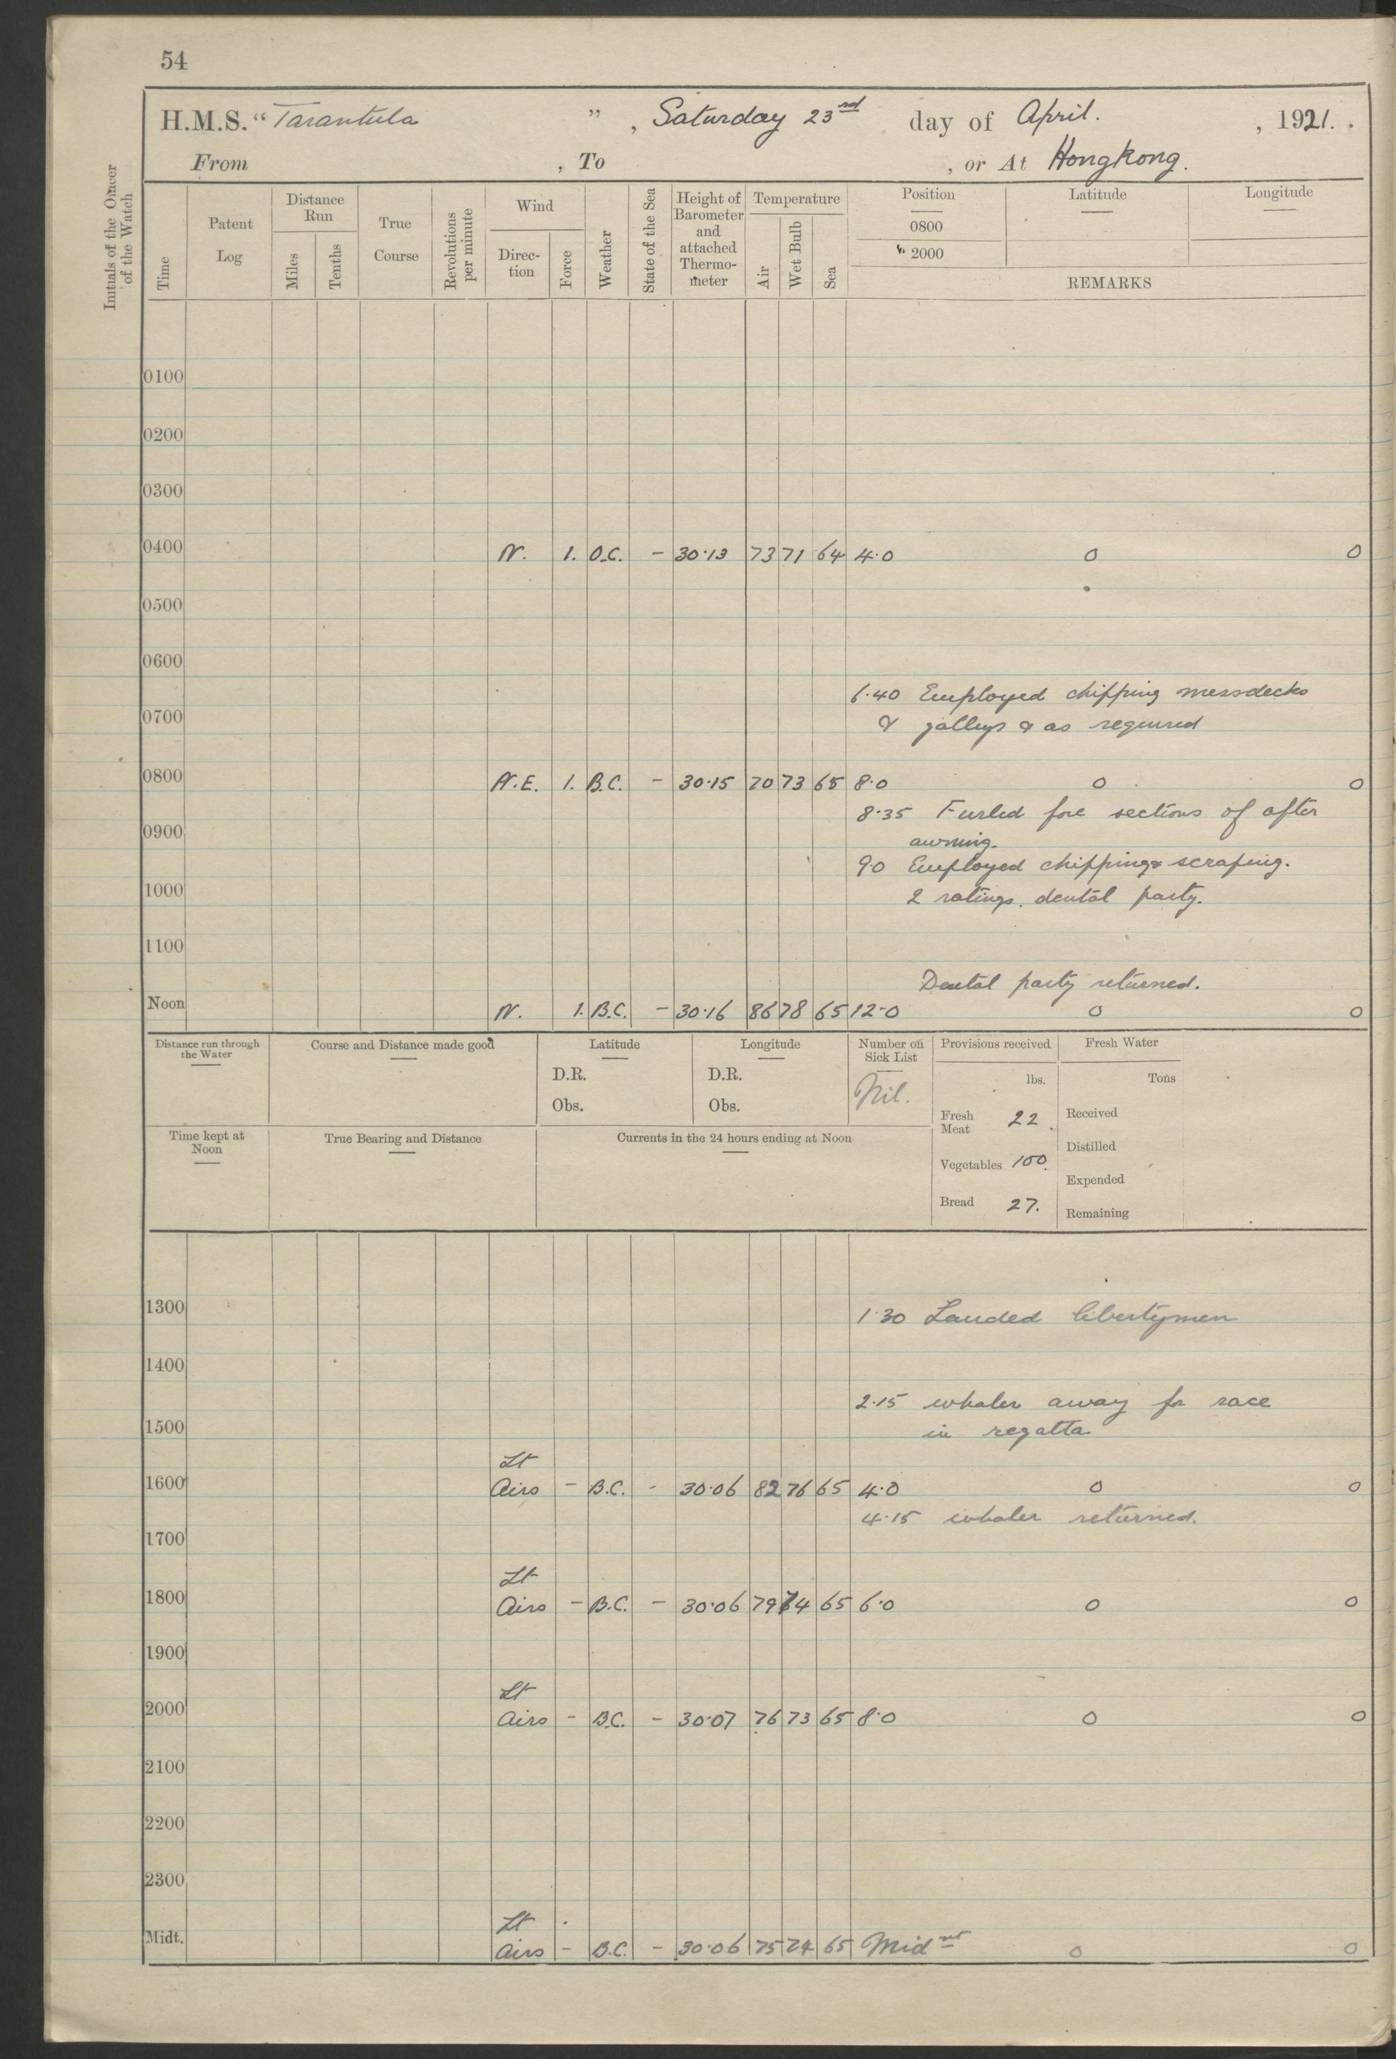 54
H.M.S. "Tarantula", Saturday 23rd day of April. , 1921.
From , To , or At Hongkong.
Initials of the Officer of the Watch
Time
Patent Log
Distance Run
Miles
Tenths
True Course
Revolutions per minute
Wind
Direction
Force
Weather
State of the Sea
Height of Barometer and attached Thermometer
Temperature
Air
Wet Bulb
Sea
Position Latitude Longitude
0800
2000
REMARKS
0100
0200
0300
0400 N. 1. O.C. - 30.13 73 71 64 4.0 0 0
0500
0600
6.40 Employed chipping messdecks
0700 & galleys & as required
0800 N.E. 1. B.C. - 30.15 70 73 65 8.0 0 0
8.35 Furled fore sections of after
0900 awning.
9.0 Employed chipping & scraping.
1000 2 ratings. dental party.
1100
Dental party returned.
Noon N. 1. B.C. - 30.16 86 78 65 12.0 0 0
Distance run through the Water
Course and Distance made good
Latitude
D.R.
Obs.
Longitude
D.R.
Obs.
Number on Sick List
Nil.
Provisions received
lbs.
Fresh Meat 22.
Vegetables 100.
Bread 27.
Fresh Water
Tons
Received
Distilled
Expended
Remaining
Time kept at Noon
True Bearing and Distance
Currents in the 24 hours ending at Noon
1300 1.30 Landed libertymen
1400
2.15 whaler away for race
1500 in regatta
1600 Lt Airs - B.C. - 30.06 82 76 65 4.0 0 0
4.15 whaler returned.
1700
1800 Lt Airs - B.C. - 30.06 79 74 65 6.0 0 0
1900
2000 Lt Airs - B.C. - 30.07 76 73 65 8.0 0 0
2100
2200
2300
Midt. Lt Airs - B.C. - 30.06 75 74 65 Midnt 0 0